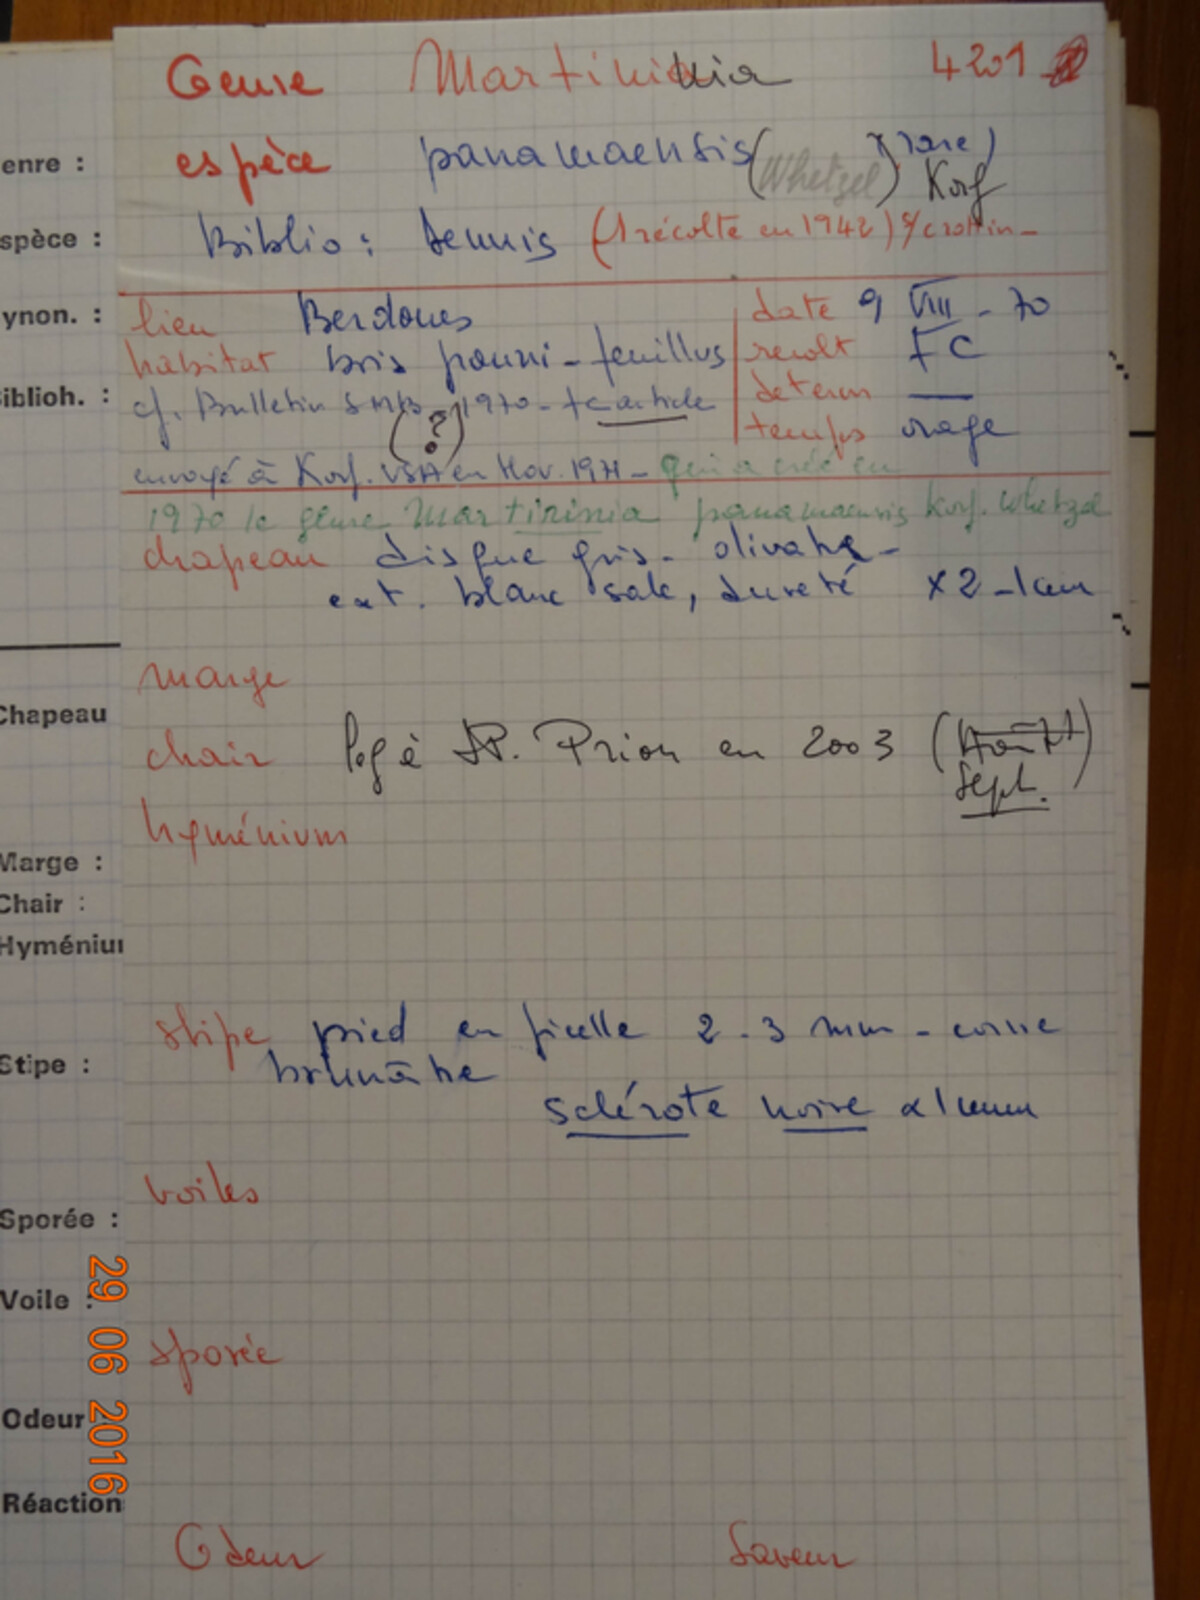 Genre Martininia 4201
enre : espèce panamaensis (Whetzel) Korf rare)
spèce : Biblio : Dennis (1 récolte en 1942) s/ crottin-
ynon. : lieu Berdoues date 9 VIII - 70
habitat bois pourri - feuillus recolt FC
iblioh. : cf. Bulletin 1970 - FC article determ —
(?) temps orage
envoyé à Korf. USA en Nov. 1971 - qui a créé en
1970 le genre Martininia panamaensis Korf. Whetzel
chapeau disque gris - olivatre -
ext. blanc sale, dureté x 2 - 1 cm
marge
Chapeau
chair logé JP. Prion en 2003 (Août)
Sept.
hyménium
Marge :
Chair :
Hyméniu
stipe pied en ficelle 2 - 3 mm -
Stipe : brunâtre
sclérote noire
voiles
Sporée :
Voile :
sporée
Odeur
Réaction
Odeur Saveur
29 06 2016